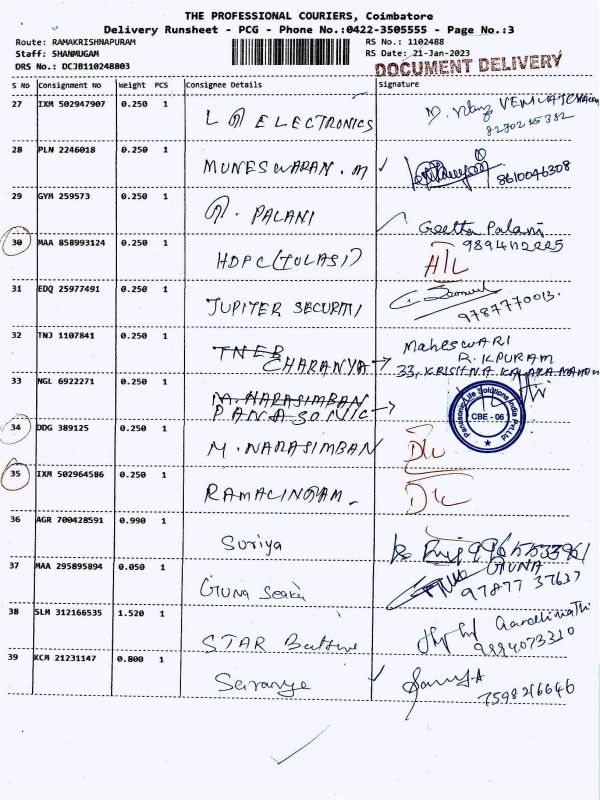 THE PROFESSIONAL COURIERS, Coimbatore
Delivery Runsheet - PCG - Phone No.:0422-3505555 - Page No.:3
Route: RAMAKRISHNAPURAM RS No.: 1102488
Staff: SHANMUGAM RS Date: 21-Jan-2023
DRS No.: DCJB110248803 DOCUMENT DELIVERY
S No Consignment No Weight PCS Consignee Details Signature
27 IXM 502947907 0.250 1 ELECTRONICS
28 PLN 2246018 0.250 1 MUNESWARAN . M 8610046308
29 GYM 259573 0.250 1 PALANI Geetha Palani
9894112225
30 MAA 858993124 0.250 1 HDPC (TULASI)
31 EDQ 25977491 0.250 1 JUPITER 9787770013.
32 TNJ 1107841 0.250 1 TNEB MahesWARI
CHARANYA R. KPURAM
33, KRISHNA
33 NGL 6922271 0.250 1 M. NARASIMBAN
PANASONIC
Panasonic Life Solutions India Pvt.Ltd
CBE - 06
34 DDG 389125 0.250 1 M. NARASIMBAN
35 IXM 502964586 0.250 1
36 AGR 700428591 0.990 1 Suriya
37 MAA 295895894 0.050 1 Guna GUNA
97877 37627
38 SLM 312166535 1.520 1 STAR
39 KCM 21231147 0.800 1
7598216646